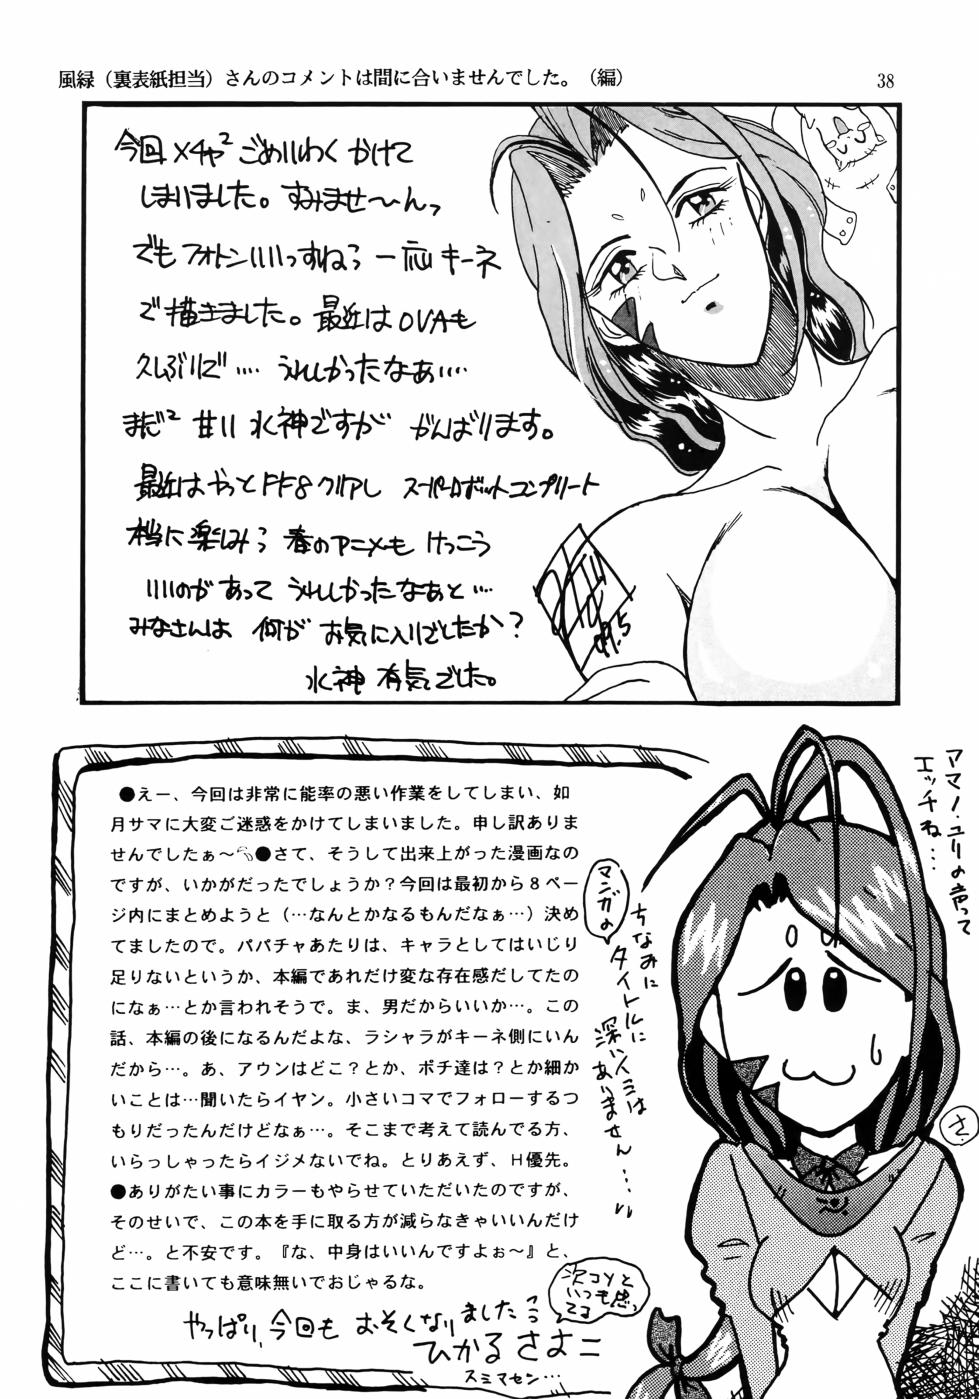 風緑（裏表紙担当）さんのコメントは間に合いませんでした。（編）
38
今回メチャ²ごめいわくかけて
しまいました。すみませ〜んっ
でもフォトンいいっすねっ一応キーネ
で描きました。最近はOVAも
久しぶりで‥‥うれしかったなぁ‥‥
まだ²甘い水神ですががんばります。
最近はやっとFF8クリアしスーパーロボットコンプリート
本当に楽しみっ春のアニメもけっこう
いいのがあってうれしかったなぁと…
みなさんは何がお気に入りでしたか？
水神有気でした。
99.5
●えー、今回は非常に能率の悪い作業をしてしまい、如
月サマに大変ご迷惑をかけてしまいました。申し訳ありま
せんでしたぁ〜●さて、そうして出来上がった漫画なの
ですが、いかがだったでしょうか？今回は最初から８ペー
ジ内にまとめようと（…なんとかなるもんだなぁ…）決め
てましたので。パパチャあたりは、キャラとしてはいじり
足りないというか、本編であれだけ変な存在感だしてたの
になぁ…とか言われそうで。ま、男だからいいか…。この
話、本編の後になるんだよな、ラシャラがキーネ側にいん
だから…。あ、アウンはどこ？とか、ポチ達は？とか細か
いことは…聞いたらイヤン。小さいコマでフォローするつ
もりだったんだけどなぁ…。そこまで考えて読んでる方、
いらっしゃったらイジメないでね。とりあえず、Ｈ優先。
●ありがたい事にカラーもやらせていただいたのですが、
そのせいで、この本を手に取る方が減らなきゃいいんだけ
ど…。と不安です。『な、中身はいいんですよぉ〜』と、
ここに書いても意味無いでおじゃるな。
やっぱり、今回もおそくなりました
次コソと
いつも思っ
てる
ひかるさよこ
スミマセン…
アマノ・ユリの声って
エッチね…
マンガの
ちなみに
タイトルに
深いイミは
ありません…
さ